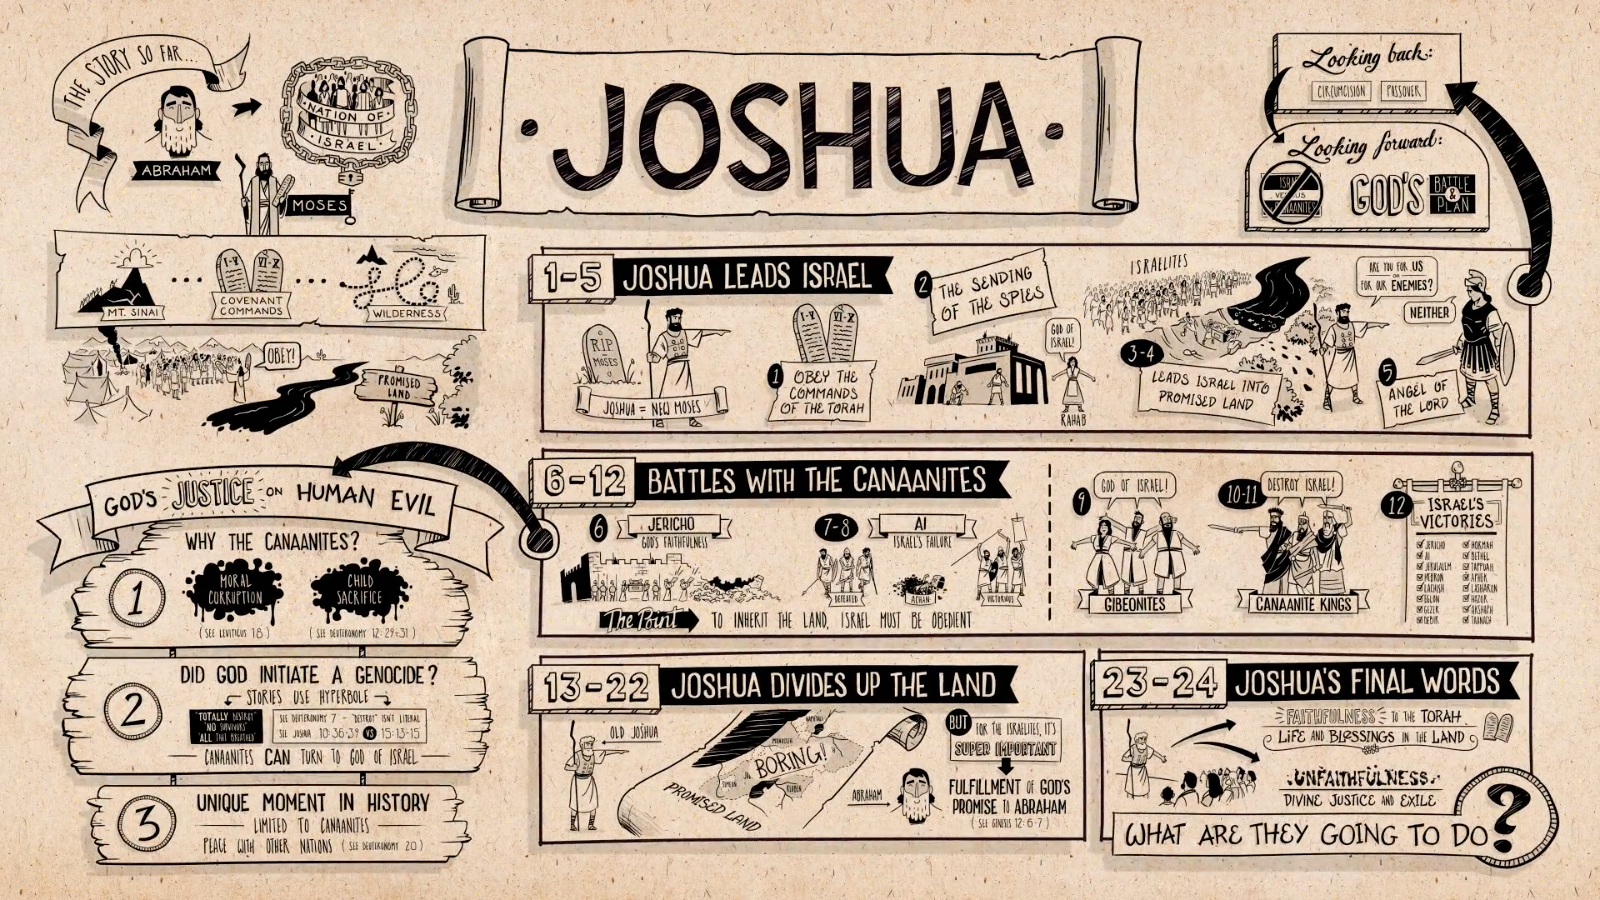 THE STORY SO FAR...
ABRAHAM
NATION OF
ISRAEL
MOSES
MT. SINAI
I-V VI-X
COVENANT
COMMANDS
WILDERNESS
OBEY!
PROMISED
LAND
• JOSHUA •
Looking back:
CIRCUMCISION PASSOVER
Looking forward:
GOD'S BATTLE
& PLAN
1-5 JOSHUA LEADS ISRAEL
RIP
MOSES
JOSHUA = NEW MOSES
I-V VI-X
1 OBEY THE
COMMANDS
OF THE TORAH
2 THE SENDING
OF THE SPIES
GOD OF
ISRAEL!
RAHAB
ISRAELITES
3-4
LEADS ISRAEL INTO
PROMISED LAND
ARE YOU FOR US
OR
FOR OUR ENEMIES?
NEITHER
5
ANGEL OF
THE LORD
GOD'S JUSTICE ON HUMAN EVIL
1
WHY THE CANAANITES?
MORAL
CORRUPTION
(SEE LEVITICUS 18)
CHILD
SACRIFICE
(SEE DEUTERONOMY 12:29-31)
2
DID GOD INITIATE A GENOCIDE?
STORIES USE HYPERBOLE
"TOTALLY DESTROY"
"NO SURVIVORS"
"ALL THAT BREATHED"
SEE DEUTERONOMY 7 - "DESTROY" ISN'T LITERAL
SEE JOSHUA 10:36-39 VS 15:13-15
CANAANITES CAN TURN TO GOD OF ISRAEL
3
UNIQUE MOMENT IN HISTORY
LIMITED TO CANAANITES
PEACE WITH OTHER NATIONS (SEE DEUTERONOMY 20)
6-12 BATTLES WITH THE CANAANITES
6 JERICHO
GOD'S FAITHFULNESS
7-8 AI
ISRAEL'S FAILURE
DEFEATED
ACHAN
VICTORIOUS
The Point TO INHERIT THE LAND, ISRAEL MUST BE OBEDIENT
9 GOD OF ISRAEL!
GIBEONITES
10-11 DESTROY ISRAEL!
CANAANITE KINGS
12 ISRAEL'S
VICTORIES
JERICHO HORMAH
AI BETHEL
JERUSALEM TAPPUAH
HEBRON APHEK
LACHISH LASHARON
EGLON HAZOR
GEZER
DEBIR TAANACH
13-22 JOSHUA DIVIDES UP THE LAND
OLD JOSHUA
BORING!
PROMISED LAND
BUT FOR THE ISRAELITES, IT'S
SUPER IMPORTANT
ABRAHAM
FULFILLMENT OF GOD'S
PROMISE TO ABRAHAM
(SEE GENESIS 12:6-7)
23-24 JOSHUA'S FINAL WORDS
FAITHFULNESS TO THE TORAH
LIFE AND BLESSINGS IN THE LAND
UNFAITHFULNESS
DIVINE JUSTICE AND EXILE
WHAT ARE THEY GOING TO DO?